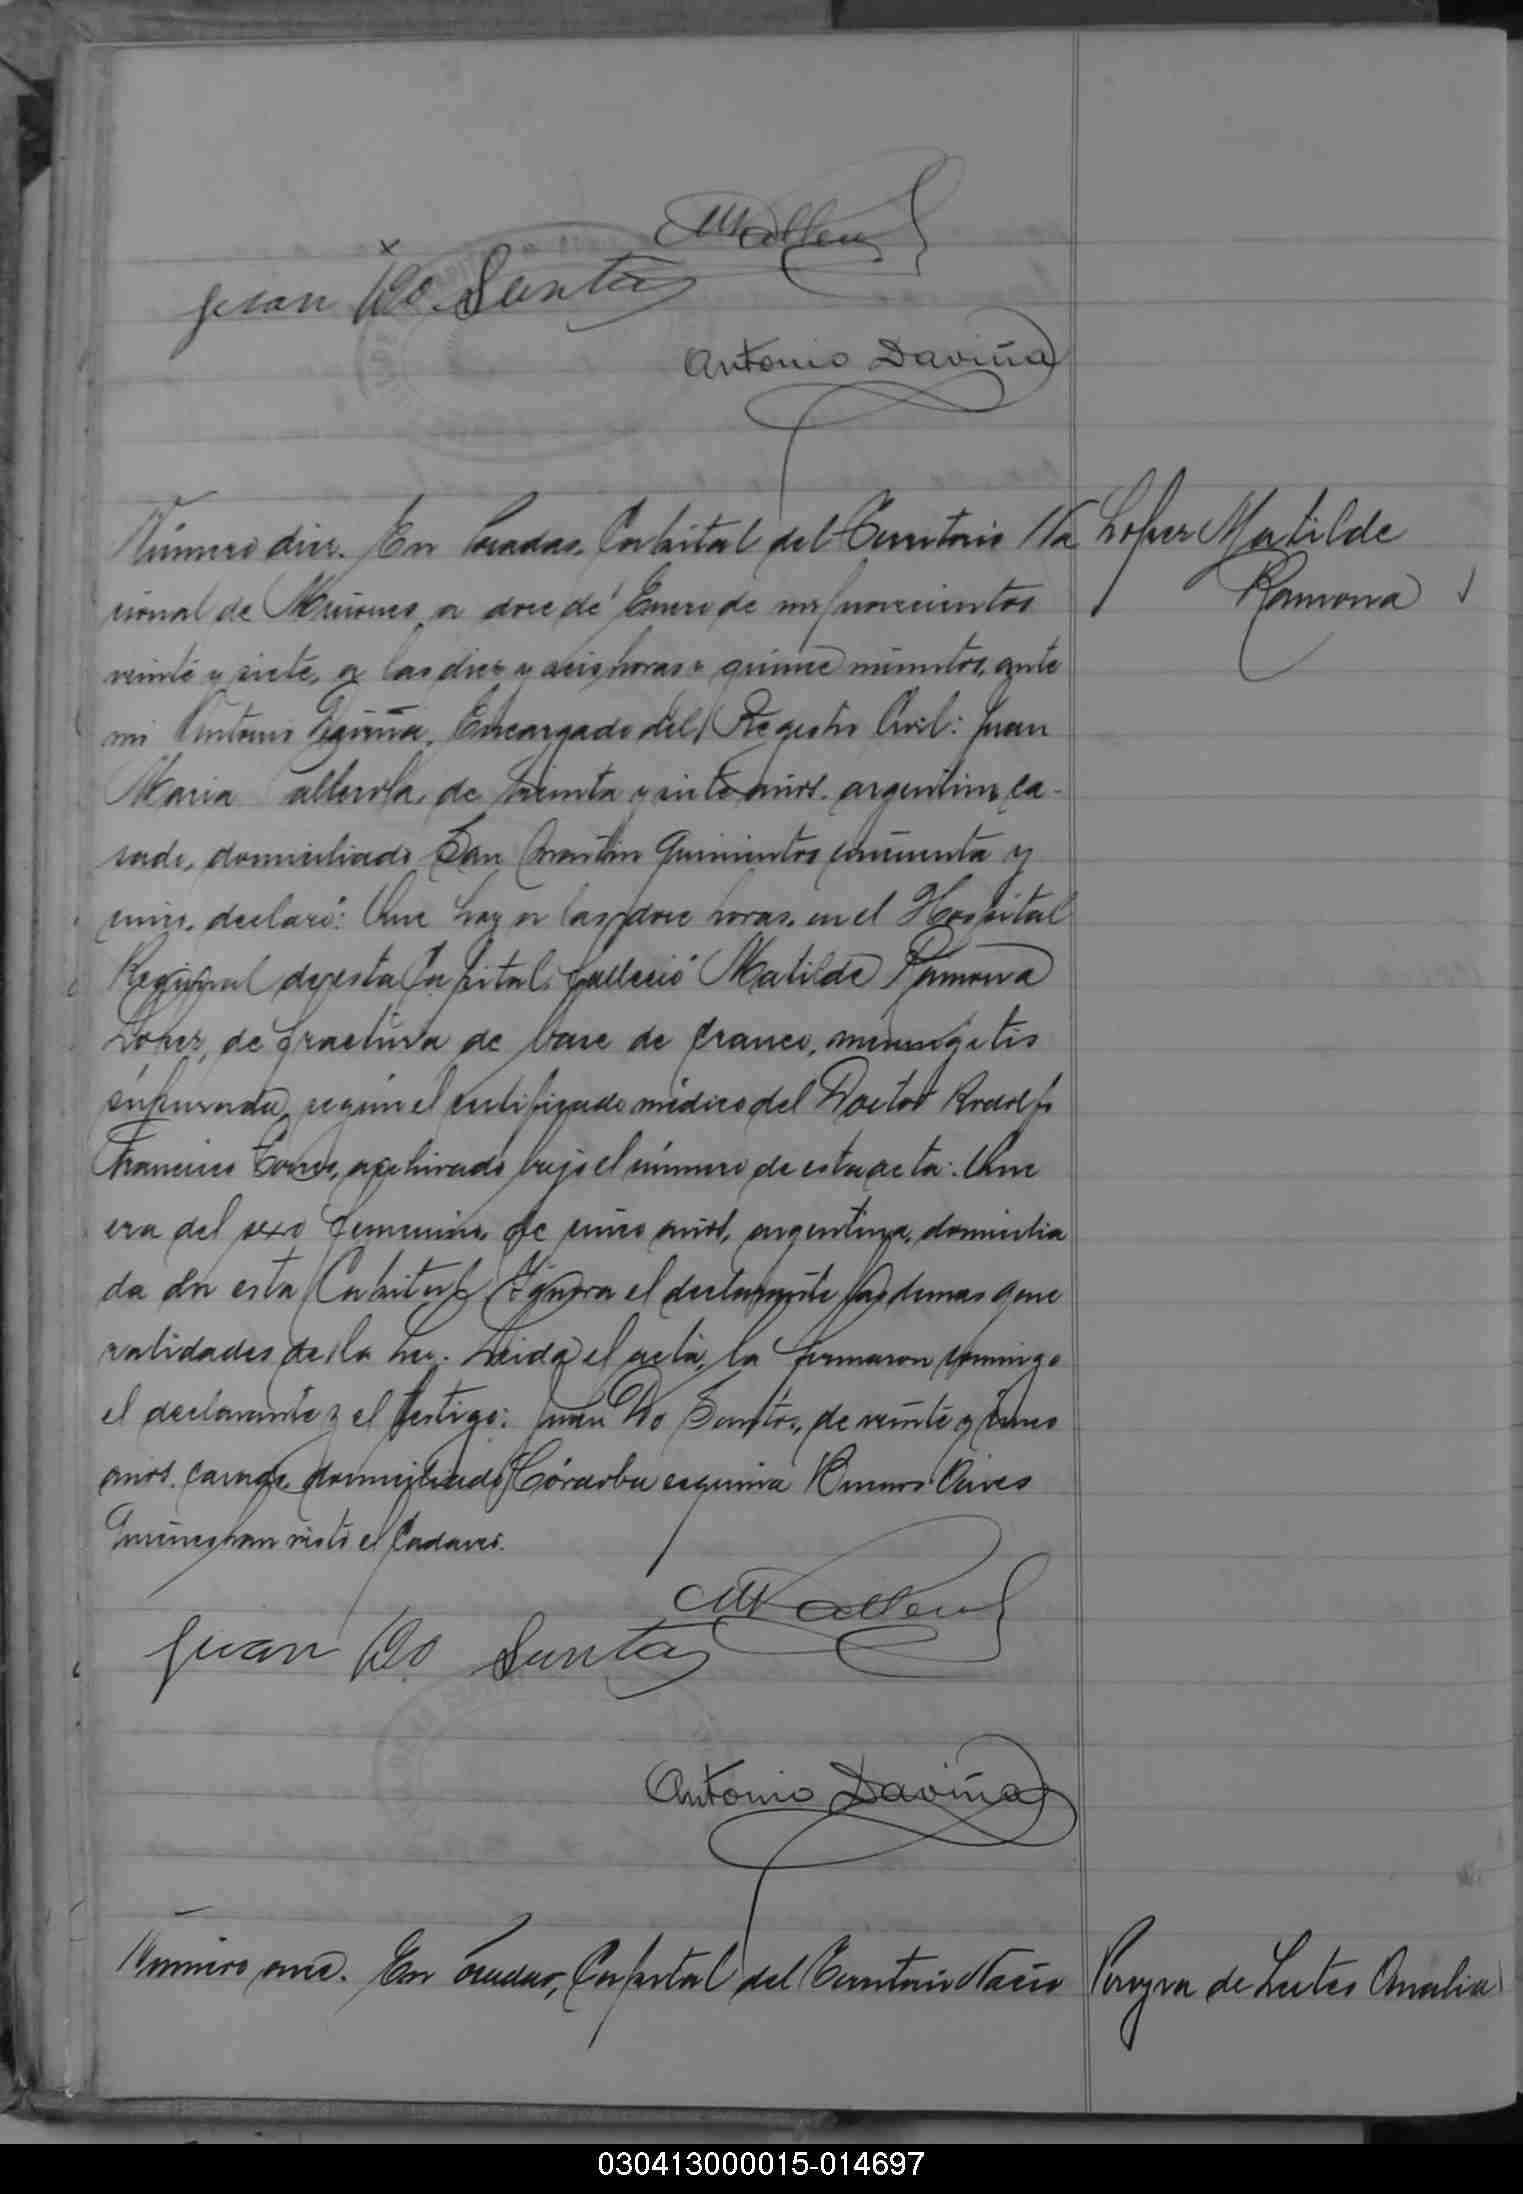 Juan Do Santos
Antonio Daviña
Número diez. En Posadas, Capital del Territorio Na
Lopez Matilde
Ramona
cional de Misiones, a doce de Enero de mil novecientos
veinte y siete, a las diez y seis horas y quince minutos, ante
mi Antonio Daviña, Encargado del Registro Civil: Juan
Maria de treinta y siete años, argentino, ca-
sado, domiciliado San Martin quinientos cincuenta y
declaró: Que hoy a las doce horas, en el Hospital
Regional de esta Capital, falleció Matilde Ramona
Lopez, de fractura de base de craneo, meningitis
supurada, según el certificado médico del Doctor Rodolfo
Francisco archivado bajo el número de esta acta: Que
era del sexo femenino, de cinco años, argentina, domicilia
da en esta Capital. Ignora el declarante las demas gene
ralidades de la Ley. Leida el acta, la firmaron conmigo
el declarante y el testigo: Juan Do Santos, de veinte y cinco
años, casado, domiciliado Córdoba esquina Buenos Aires
Quienes han visto el Cadaver.
Juan Do Santos
Antonio Daviña
Número once. En Posadas, Capital del Territorio Nacio
Pereyra de Leites Amalia
030413000015-014697